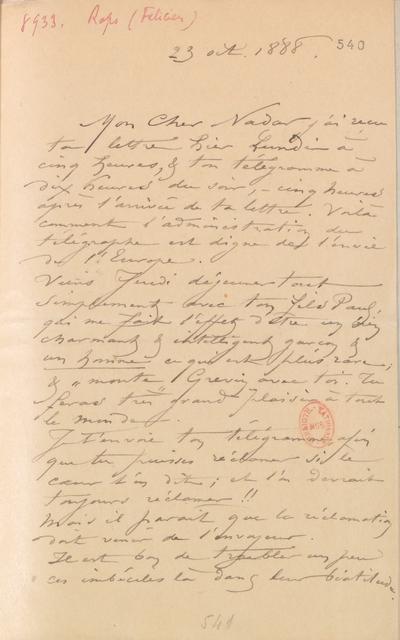 8933. Rops (Félicien)
23 oct. 1888. 540
Mon Cher Nadar j'ai reçu
ta lettre hier Lundi à
cinq heures, & ton télégramme à
dix heures du soir, – cinq heures
après l'arrivée de ta lettre. Voilà
comment l'administration du
télégraphe est digne de l'envie
de l'Europe.
Viens Jeudi déjeuner tout
simplement avec ton fils Paul,
qui me fait l'effet d'être un
charmant & intelligent garçon &
un homme ce qui est plus rare;
& "monte" Grevin avec toi. Tu
feras très grand plaisir à tout
le monde.
Je t'envoie ton télégramme afin
que tu puisses réclamer si le
cœur t'en dit; et l'on devrait
toujours réclamer!!
Mais il paraît que la réclamation
doit venir de l'envoyeur.
Il est bon de troubler un peu
ces imbéciles là dans leur béatitude.
541